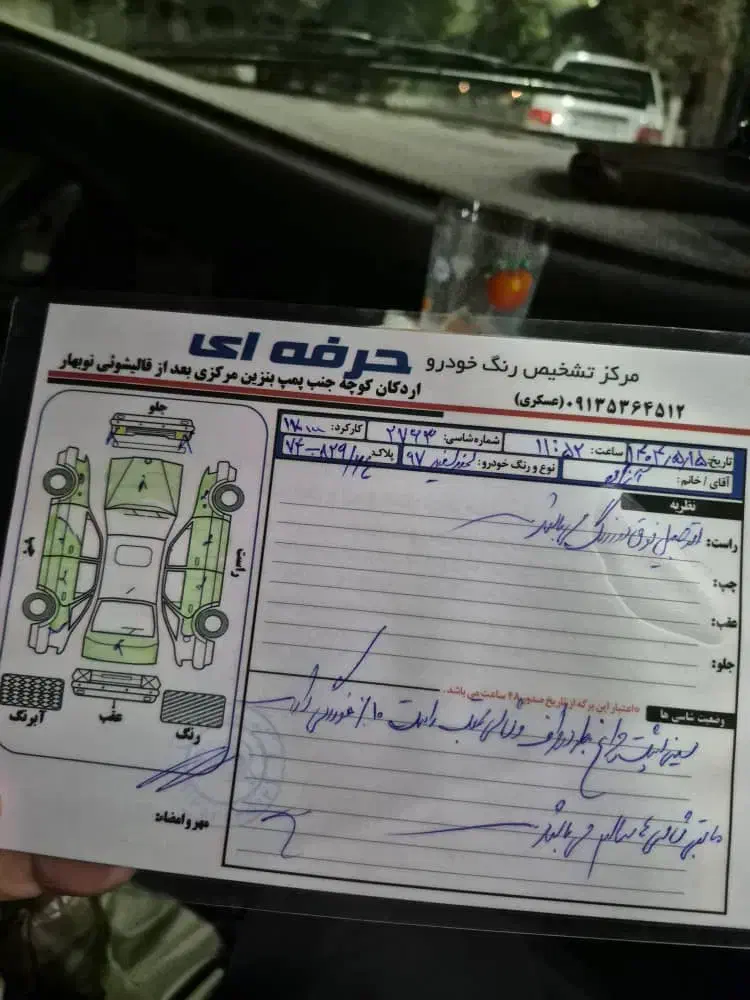 مرکز تشخیص رنگ خودرو حرفه ای
اردکان کوچه جنب پمپ بنزین مرکزی بعد از قالیشوئی نوبهار
۰۹۱۳۵۳۶۴۵۱۲ (عسکری)
تاریخ: ۱۴۰۴/۵/۱۵ ساعت: ۱۱:۵۲ شماره شاسی: ۲۷۶۳ کارکرد:
آقای / خانم: نوع و رنگ خودرو: سفید ۹۷ پلاک:
نظریه
راست: فوق می باشد
چپ:
عقب:
جلو:
«اعتبار این برگه از تاریخ صدور ۴۸ ساعت می باشد.
وضعیت شاسی ها
چراغ عقب راست ۱۰٪ خوردگی دارد
مابقی شاسی ها سالم می باشد
جلو
چپ
راست
عقب
آبرنگ
رنگ
مهر و امضاء: